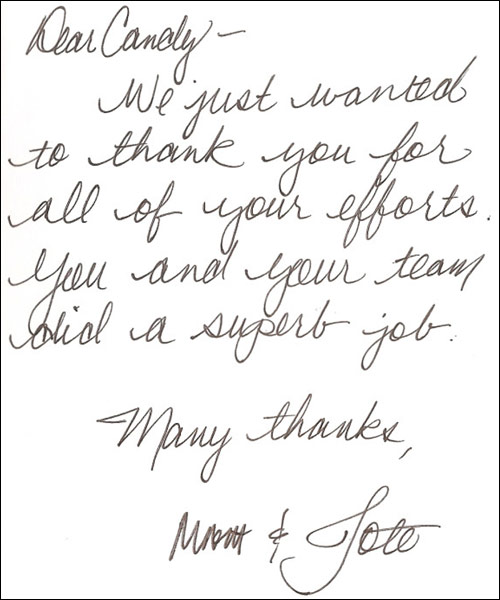 Dear Candy-
We just wanted
to thank you for
all of your efforts.
You and your team
did a superb job.
Many thanks,
&